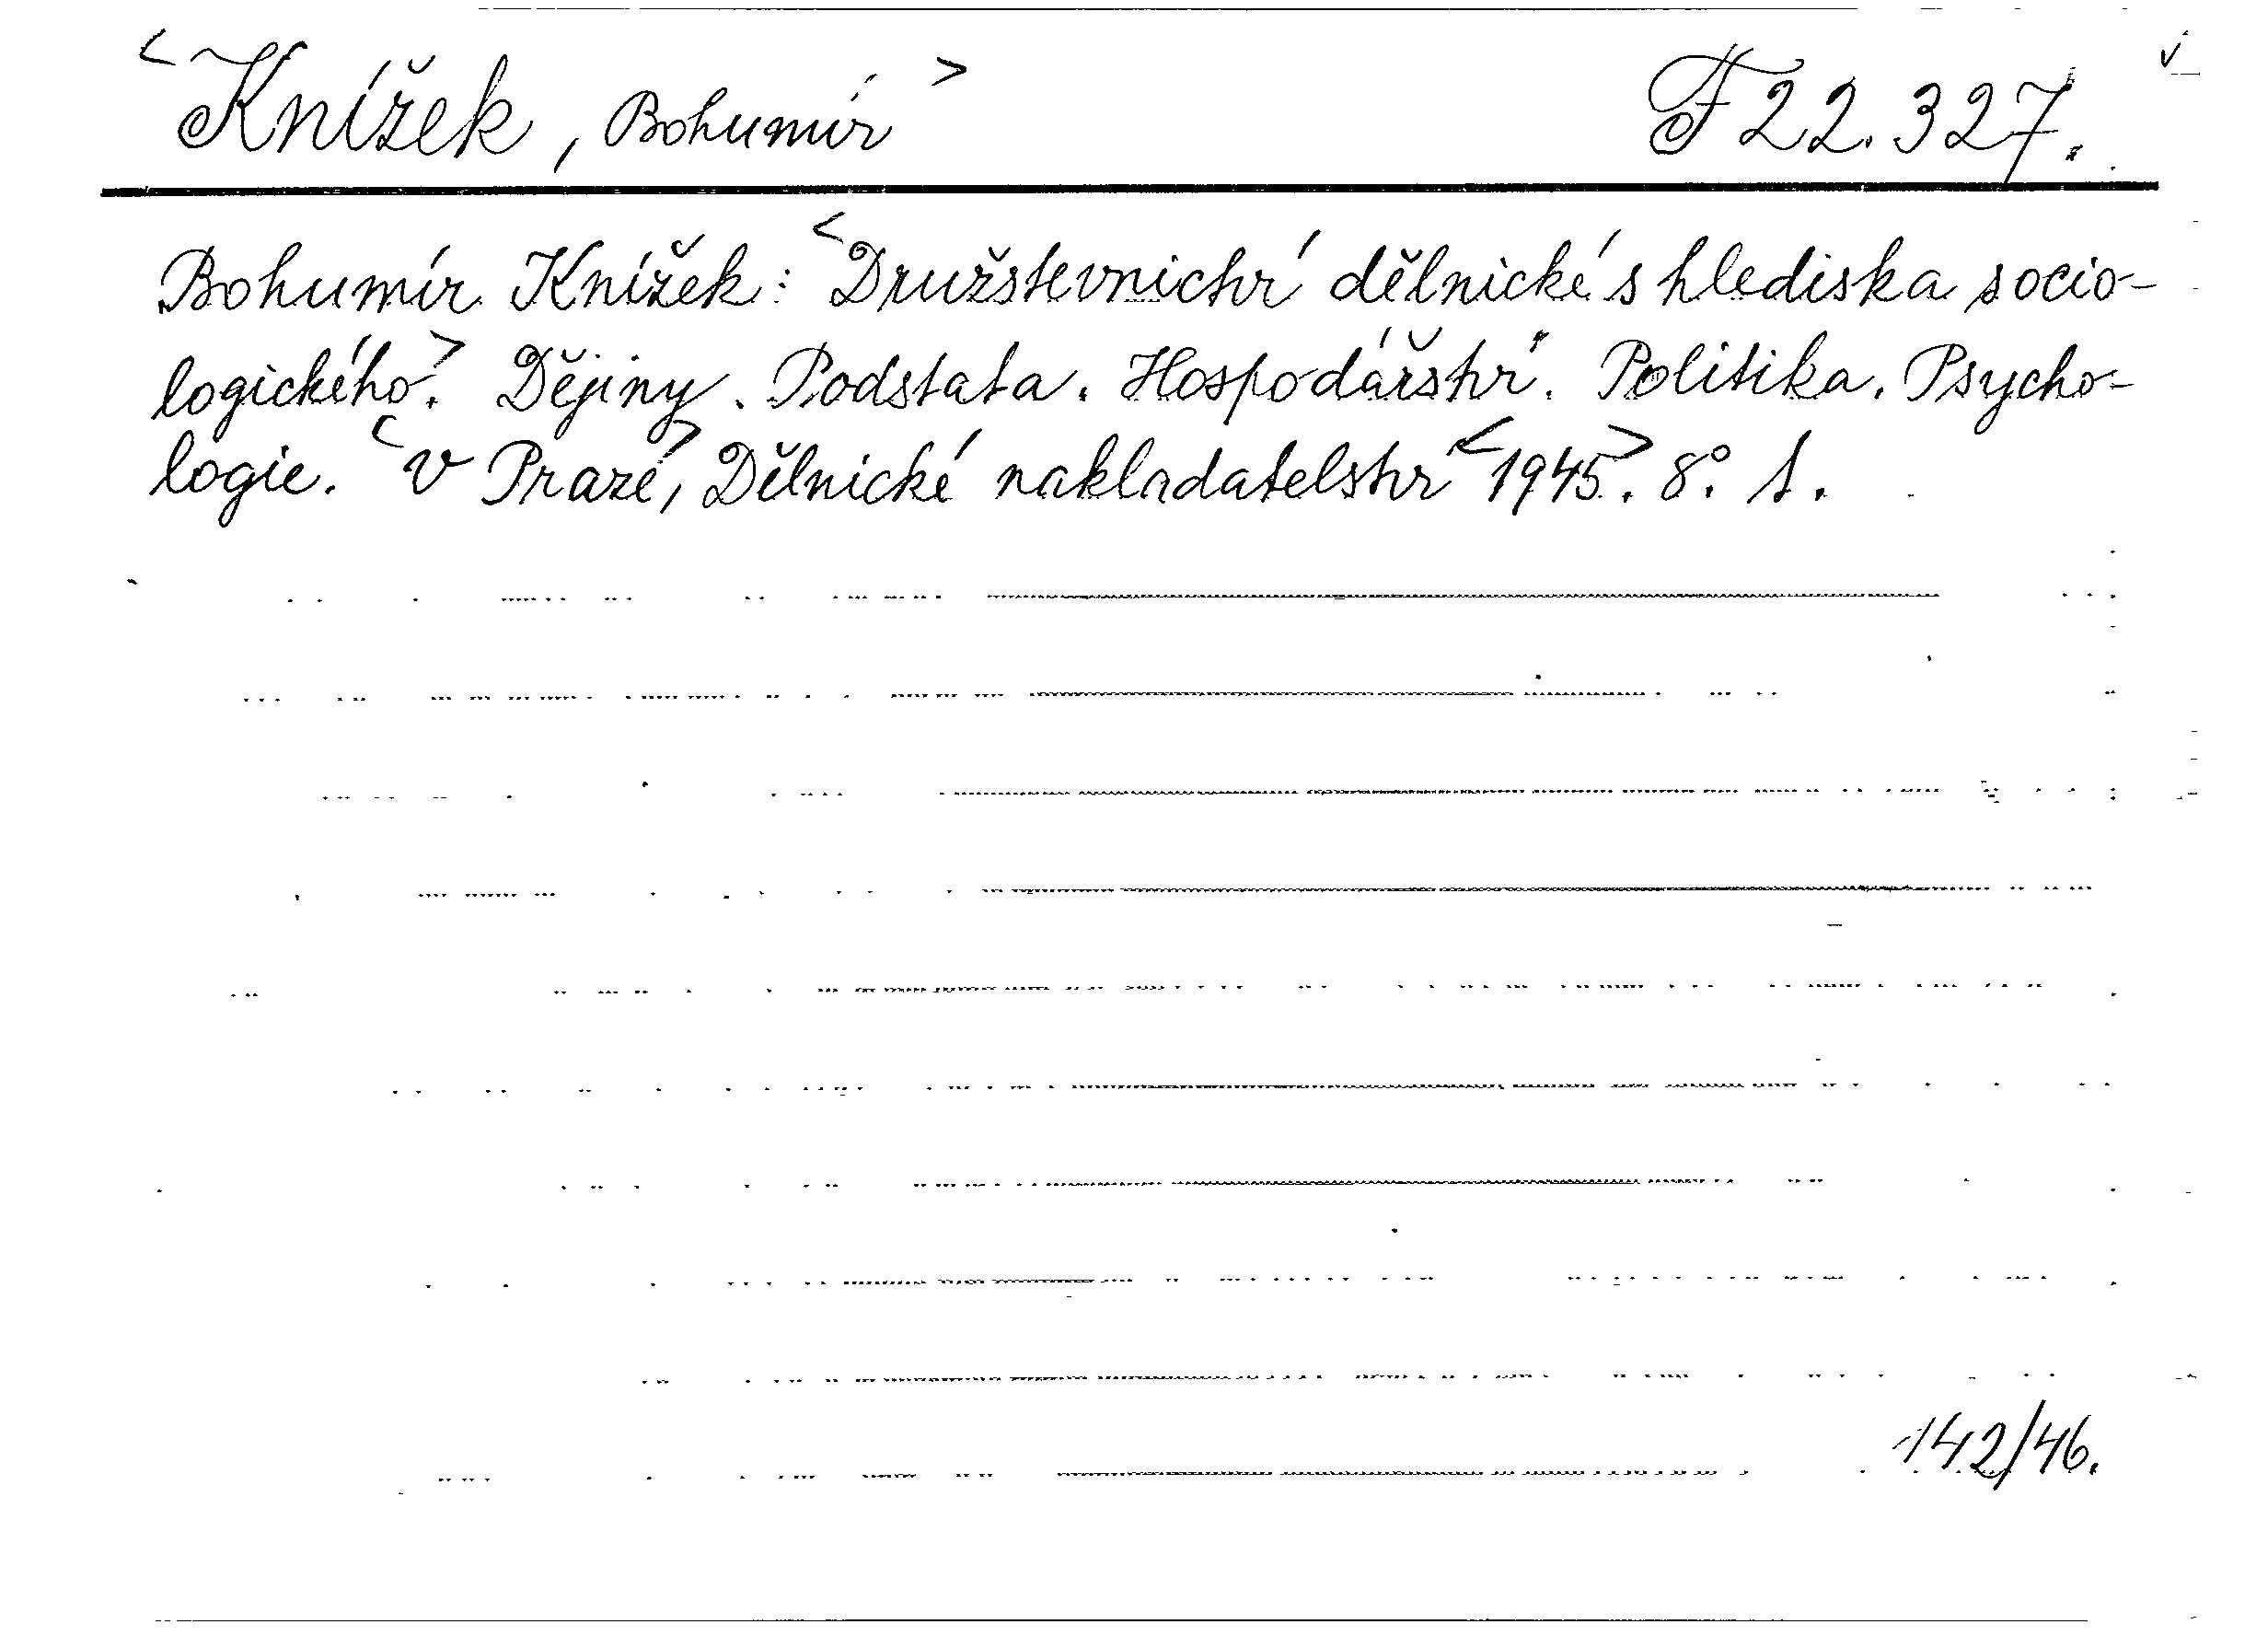 <Knížek, Bohumír> F 22.327.
Bohumír Knížek: <Družstevnictví dělnické s hlediska socio-
logického.> Dějiny. Podstata. Hospodářství. Politika. Psycho-
logie. <V Praze,> Dělnické nakladatelství <1945>. 8°. 1.
142/46.